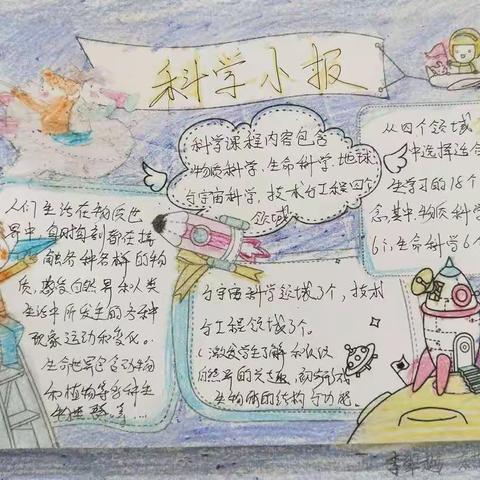 科学小报
科学课程内容包含
物质科学，生命科学，地球
与宇宙科学，技术与工程四个
领域
从四个领域
中选择适合
学生学习的18个
念，其中，物质科学
6个，生命科学6个
人们生活在物质世
界中，每时每刻都在接
触各种各样的物
质，感受自然界和人类
生活中所发生的各种
现象运动和变化。
生命世界包含动物
和植物等各种生
物
与宇宙科学领域3个，技术
与工程领域3个。
激发学生了解和认识
自然界的兴趣，
生物体的结构与功能。